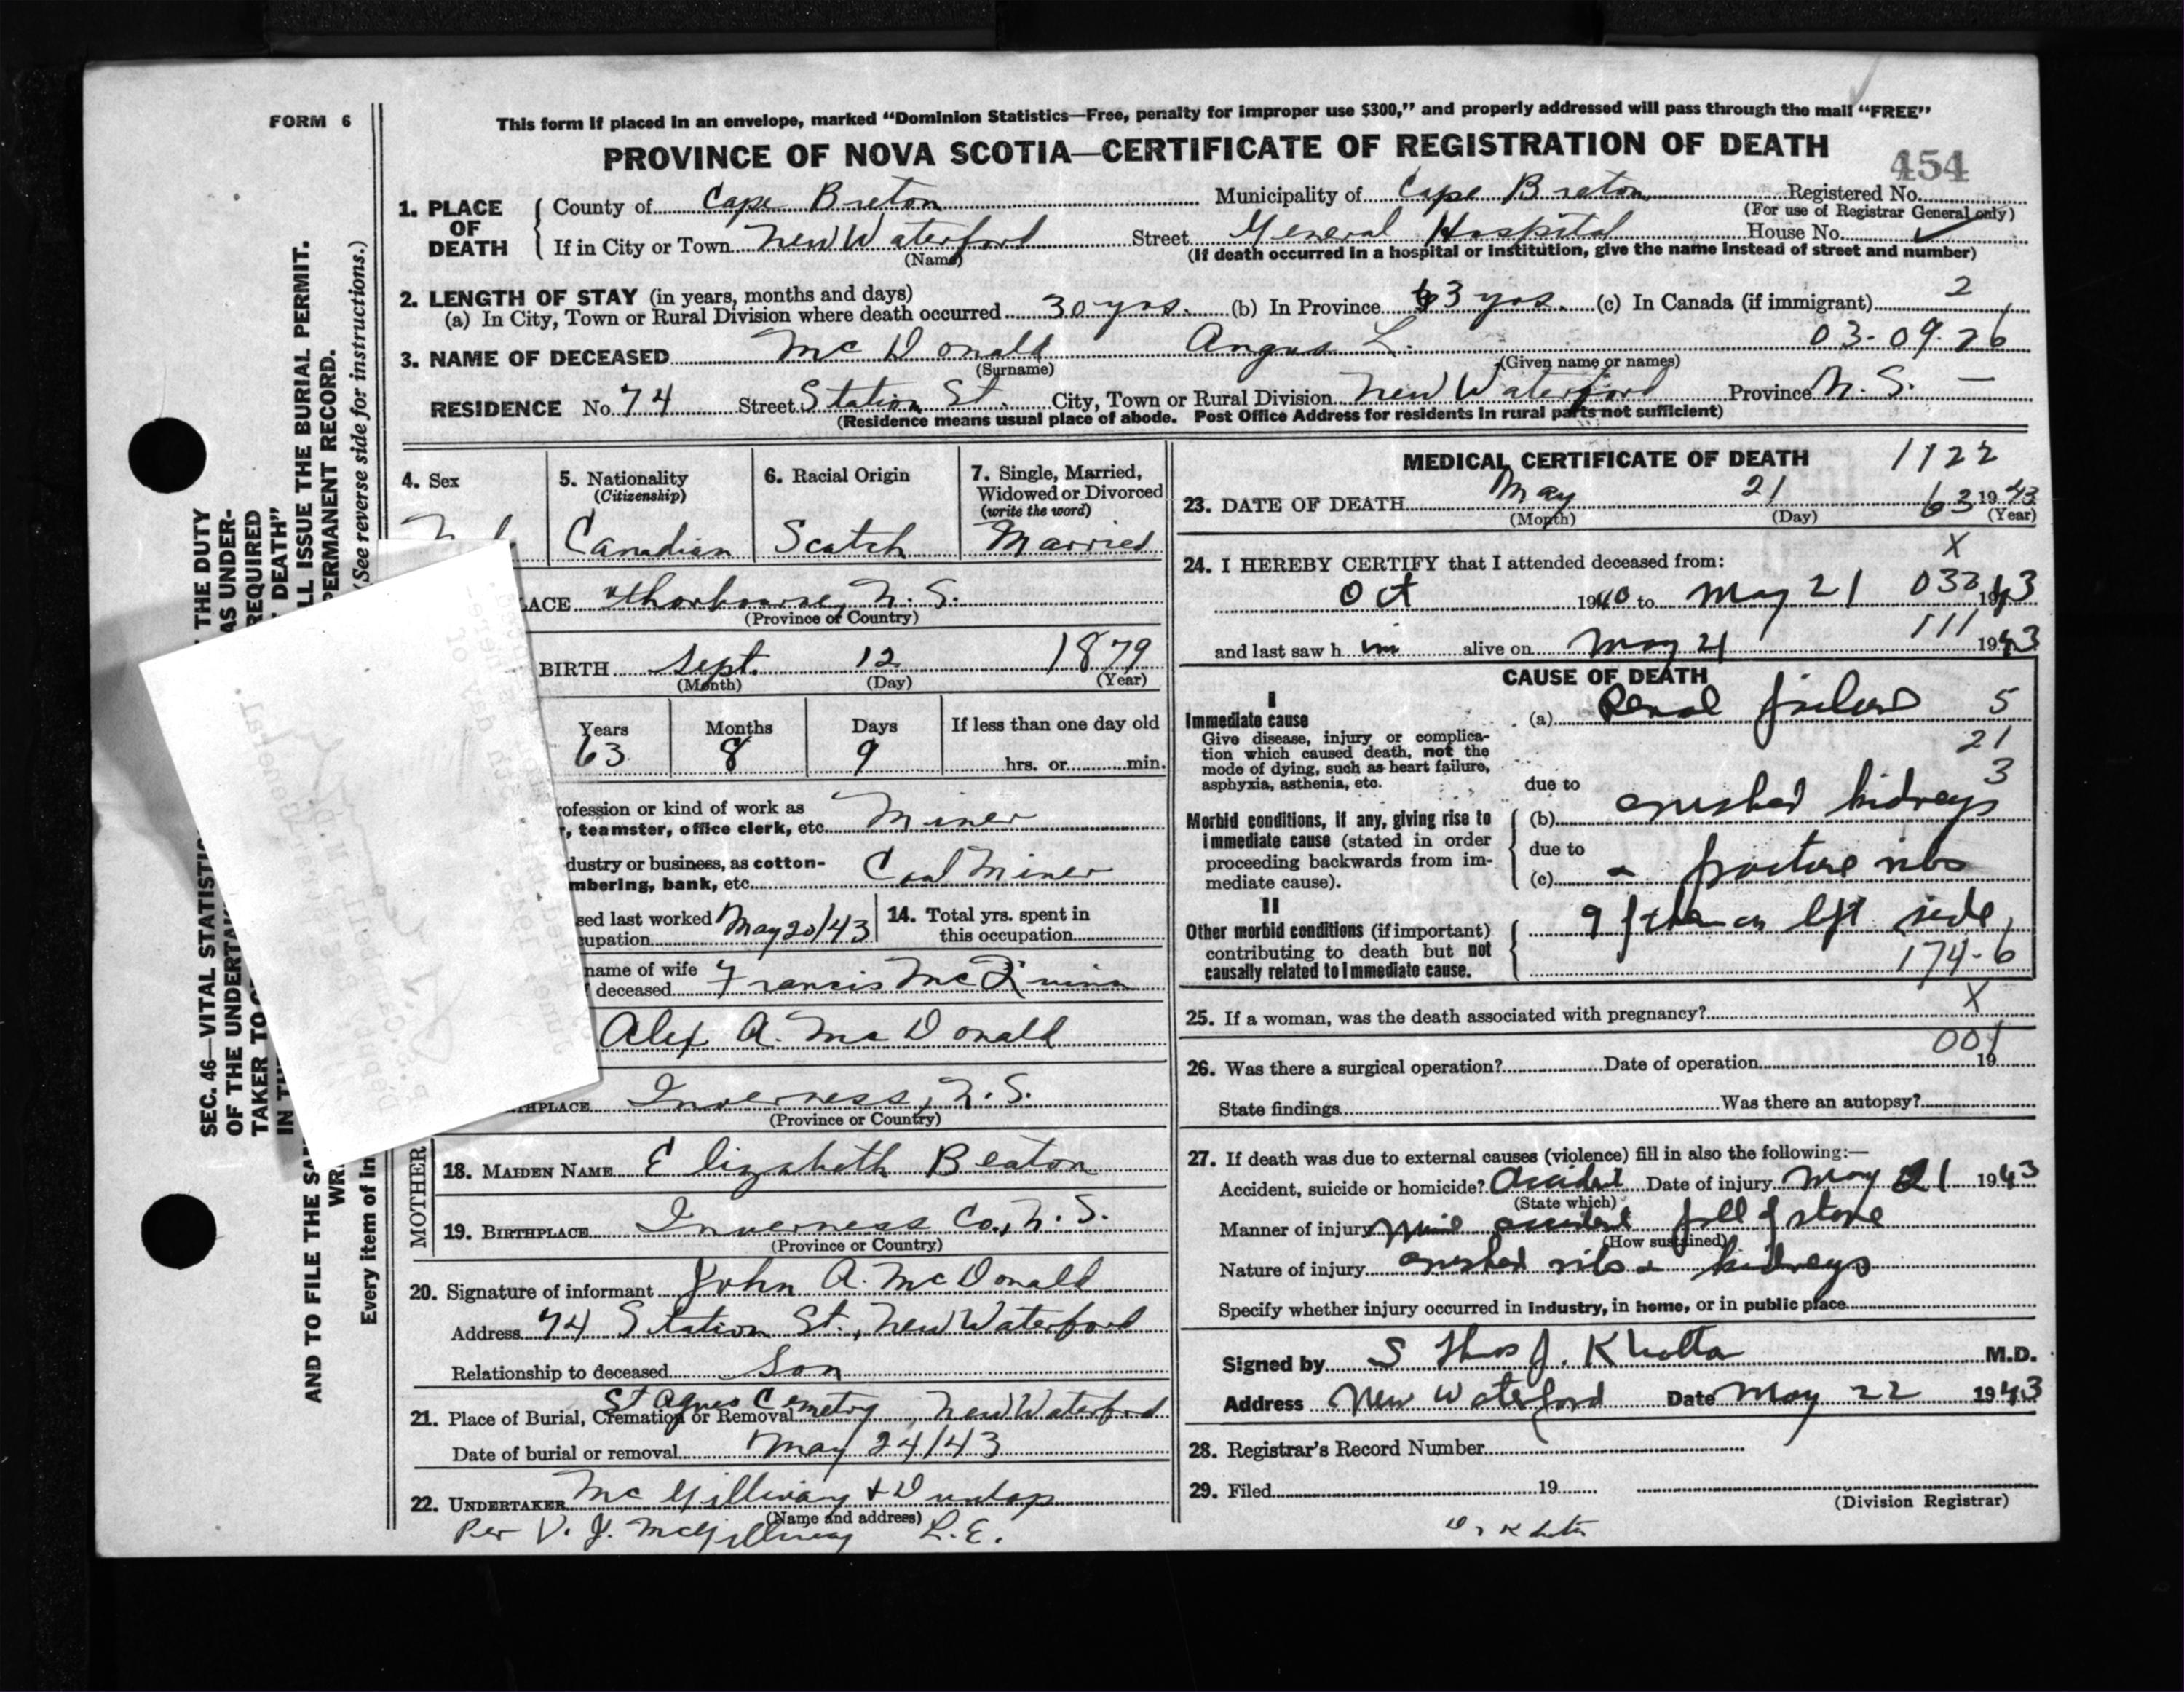 FORM 6
This form if placed in an envelope, marked "Dominion Statistics—Free, penalty for improper use $300," and properly addressed will pass through the mail "FREE"
PROVINCE OF NOVA SCOTIA—CERTIFICATE OF REGISTRATION OF DEATH
454
1. PLACE OF DEATH
County of Cape Breton Municipality of Cape Breton Registered No.
(For use of Registrar General only)
If in City or Town New Waterford Street General Hospital House No.
(Name) (If death occurred in a hospital or institution, give the name instead of street and number)
2. LENGTH OF STAY (in years, months and days)
(a) In City, Town or Rural Division where death occurred 30 yrs. (b) In Province 63 yrs. (c) In Canada (if immigrant) 2
03-09-26
3. NAME OF DECEASED McDonald Angus L.
(Surname) (Given name or names)
RESIDENCE No. 74 Street Station St. City, Town or Rural Division New Waterford Province N.S. —
(Residence means usual place of abode. Post Office Address for residents in rural parts not sufficient)
4. Sex
5. Nationality (Citizenship)
Canadian
6. Racial Origin
Scotch
7. Single, Married, Widowed or Divorced (write the word)
Married
LACE Thorbourne, N.S.
(Province or Country)
BIRTH Sept. 12 1879
(Month) (Day) (Year)
Years Months Days If less than one day old
63 8 9 hrs. or min.
rofession or kind of work as
, teamster, office clerk, etc. Miner
dustry or business, as cotton-
mbering, bank, etc. Coal Miner
sed last worked May 20/43
upation
14. Total yrs. spent in this occupation
name of wife
deceased Francis McKinnon
Alex A. McDonald
THPLACE Inverness, N.S.
(Province or Country)
MOTHER
18. MAIDEN NAME Elizabeth Beaton
19. BIRTHPLACE Inverness Co., N.S.
(Province or Country)
20. Signature of informant John A. McDonald
Address 74 Station St., New Waterford
Relationship to deceased Son
21. Place of Burial, Cremation or Removal St Agnes Cemetry, New Waterford
Date of burial or removal May 24/43
22. UNDERTAKER McGillivary & Dunlap
(Name and address)
Per V. J. McGillivray L.E.
MEDICAL CERTIFICATE OF DEATH 1122
23. DATE OF DEATH May 21 63 1943
(Month) (Day) (Year)
X
24. I HEREBY CERTIFY that I attended deceased from:
Oct 1940 to May 21 1943
111
and last saw him alive on May 21 1943
CAUSE OF DEATH
I
Immediate cause
Give disease, injury or complication which caused death, not the mode of dying, such as heart failure, asphyxia, asthenia, etc.
(a) Renal failure 5
21
3
due to
Morbid conditions, if any, giving rise to immediate cause (stated in order proceeding backwards from immediate cause).
(b) crushed kidneys
due to
(c) & fracture ribs
II
Other morbid conditions (if important) contributing to death but not causally related to immediate cause.
9 of them on left side,
174-6
X
25. If a woman, was the death associated with pregnancy?
001
26. Was there a surgical operation? Date of operation 19
State findings Was there an autopsy?
27. If death was due to external causes (violence) fill in also the following:—
Accident, suicide or homicide? Accident Date of injury May 21 1943
(State which)
Manner of injury Mine accident fall of stone
(How sustained)
Nature of injury crushed ribs & kidneys
Specify whether injury occurred in industry, in home, or in public place
Signed by M.D.
Address New Waterford Date May 22 1943
28. Registrar's Record Number
29. Filed 19
(Division Registrar)
SEC. 46—VITAL STATISTIC
THE DUTY
OF THE UNDERTAK
AS UNDER-
TAKER TO
REQUIRED
IN TH
DEATH"
AND TO FILE THE SA
LL ISSUE THE BURIAL PERMIT.
WR
PERMANENT RECORD.
Every item of in
(See reverse side for instructions.)